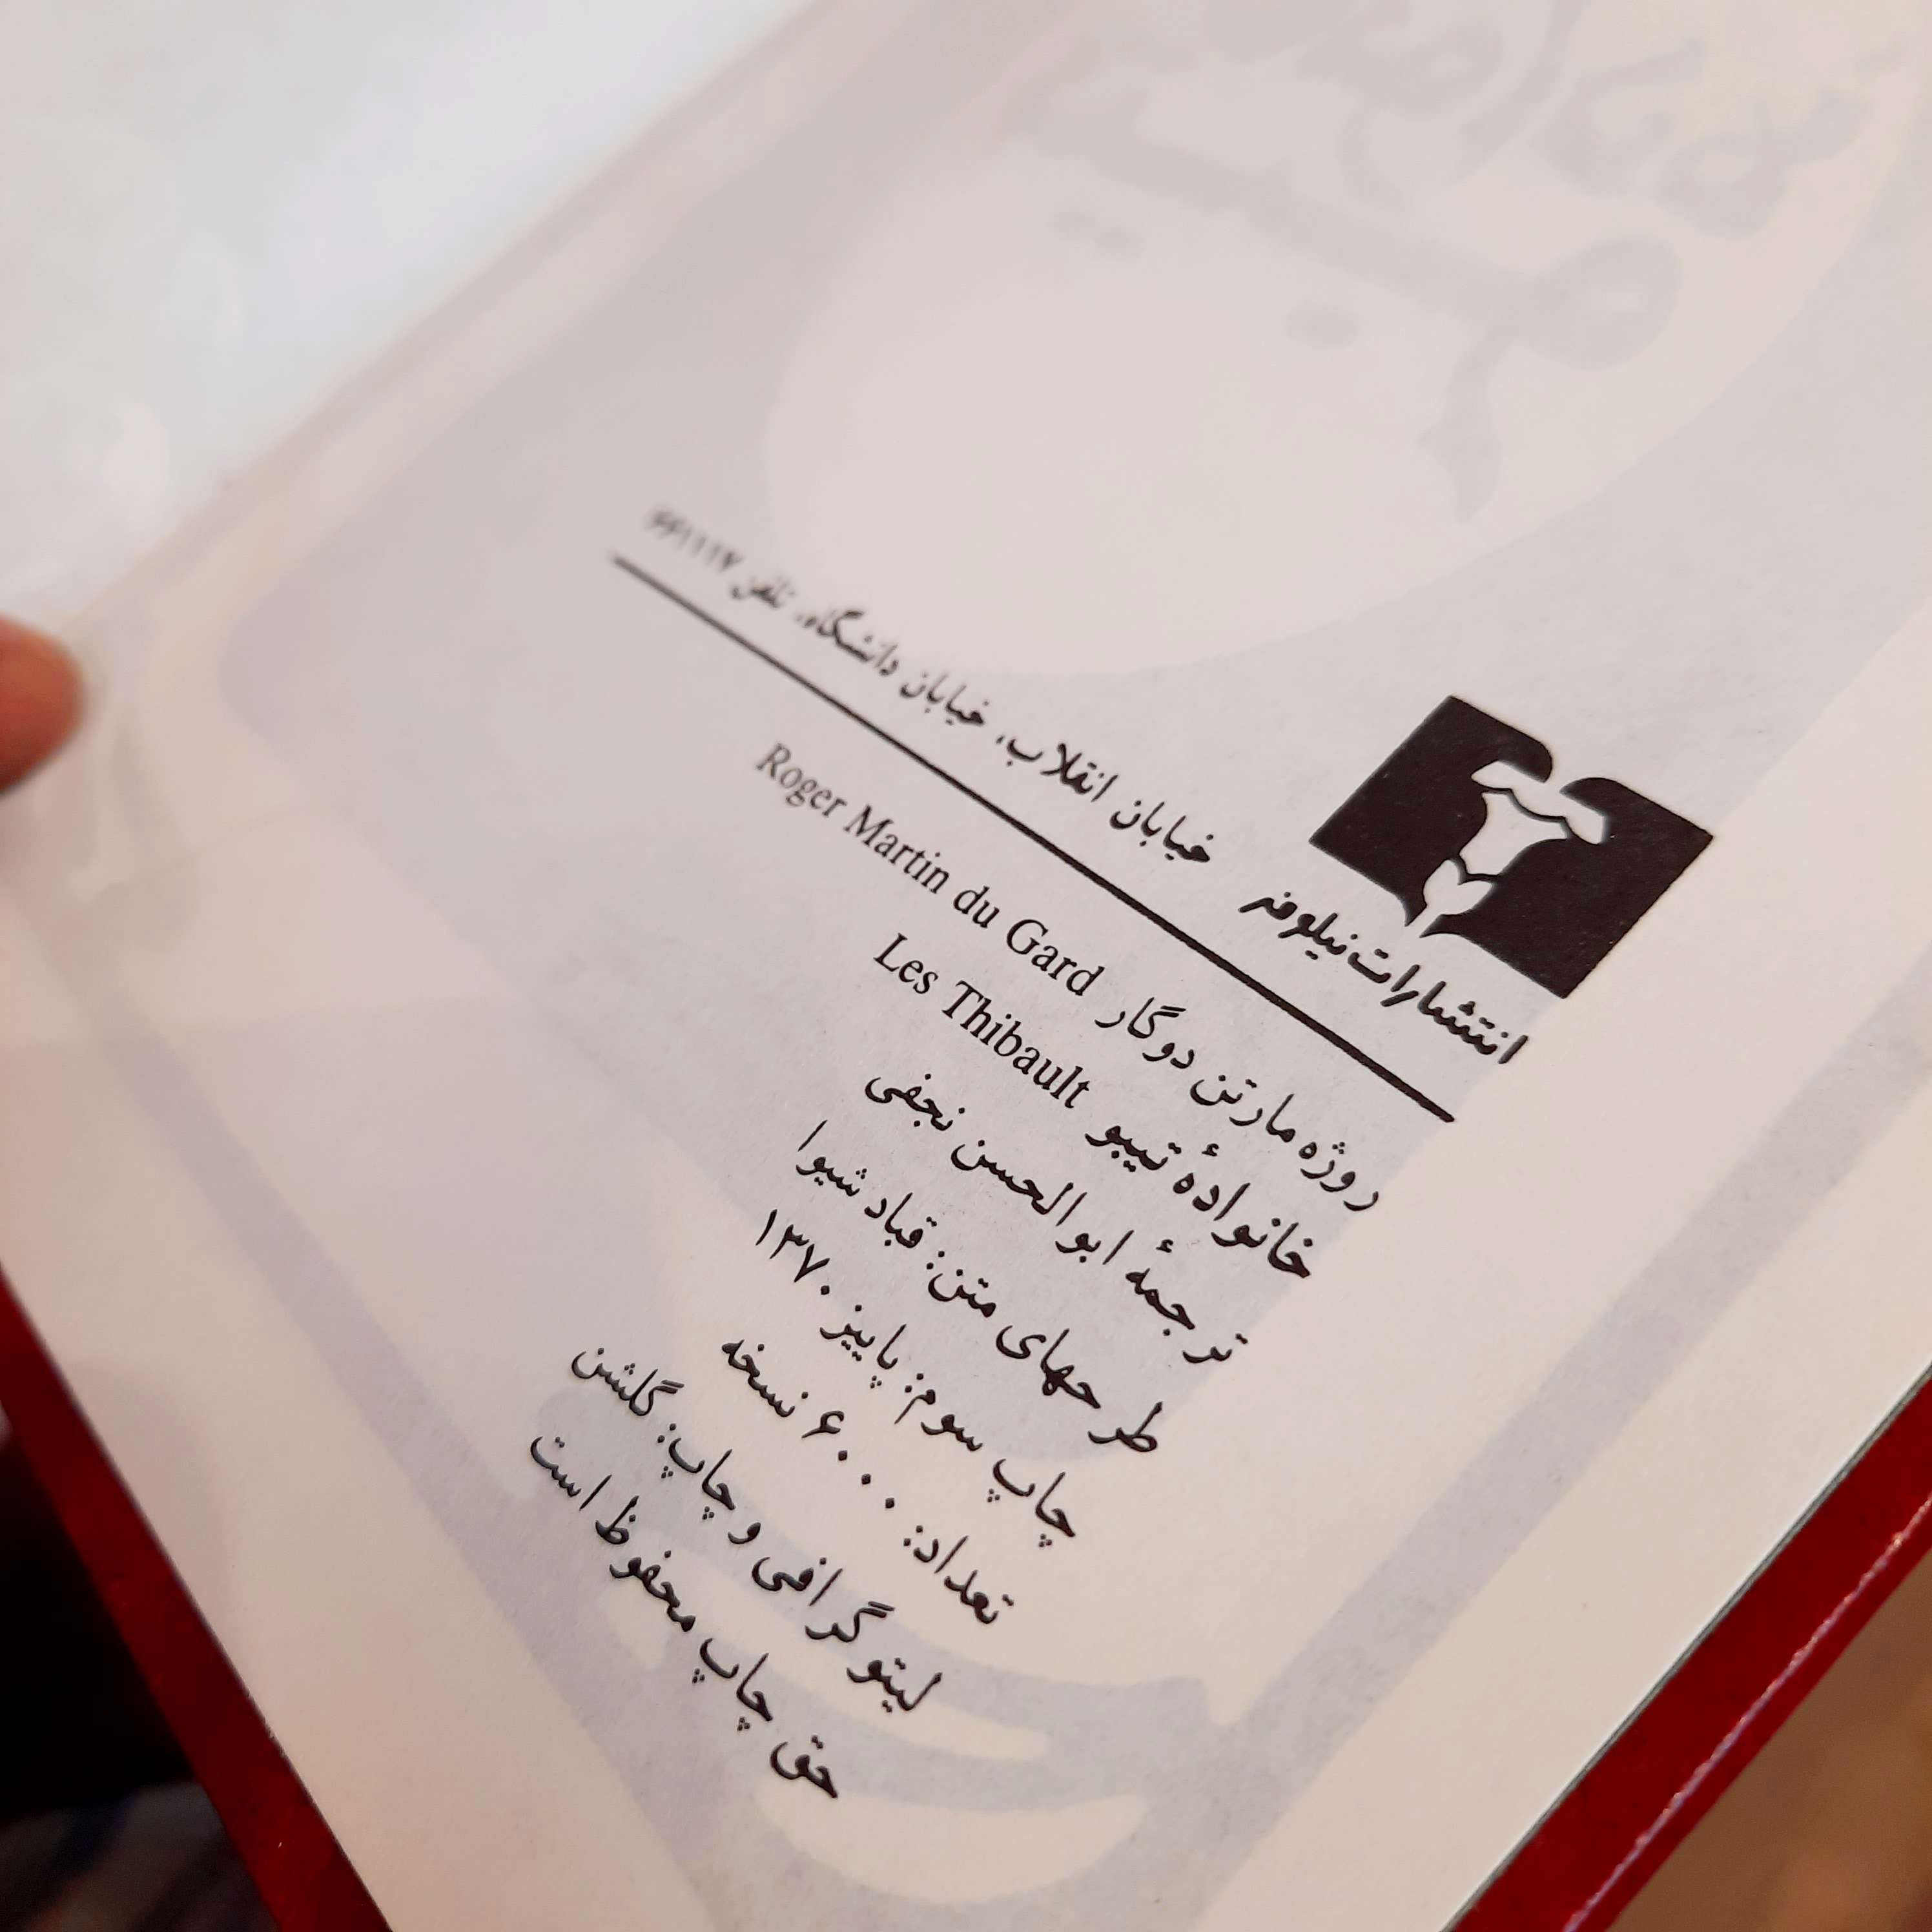 انتشارات نیلوفر
خیابان انقلاب، خیابان دانشگاه، تلفن ۶۶۱۱۱۷
روژه مارتن دوگار Roger Martin du Gard
خانوادهٔ تیبو Les Thibault
ترجمهٔ ابوالحسن نجفی
طرحهای متن: قباد شیوا
چاپ سوم: پاییز ۱۳۷۰
تعداد: ۶۰۰۰ نسخه
لیتوگرافی و چاپ: گلشن
حق چاپ محفوظ است